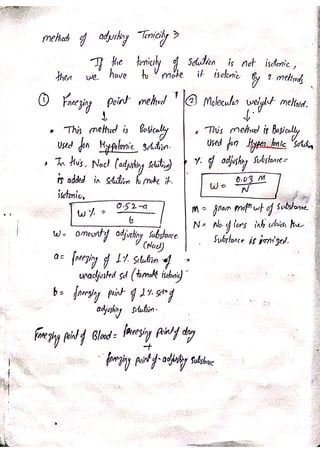 methods of adjusting Tonicity >
If the tonicity of Solution is not isotonic,
then we have to make it isotonic By 2 methods
① Freezing point method
↓
• This method is Basically
Used for Hypotonic Solution.
• In this, Nacl (adjusting Solution)
is added in Solution to make it
isotonic.
W % = 0.52-a / b
W = amount of adjusting substance
(Nacl)
a = freezing of 1% Solution of
unadjusted sol (to made isotonic)
b = freezing point of 1% soln of
adjusting solution.
② Molecular weight method.
↓
• This method is Basically
Used for Hyper tonic Solution
• % of adjusting substance =
W = 0.03 M / N
M = gram mole wt of Substance
N = No. of Ions into which the
Substance is ionized.
Freezing point of Blood = freezing point of drug
+
freezing point of adjusting Substance